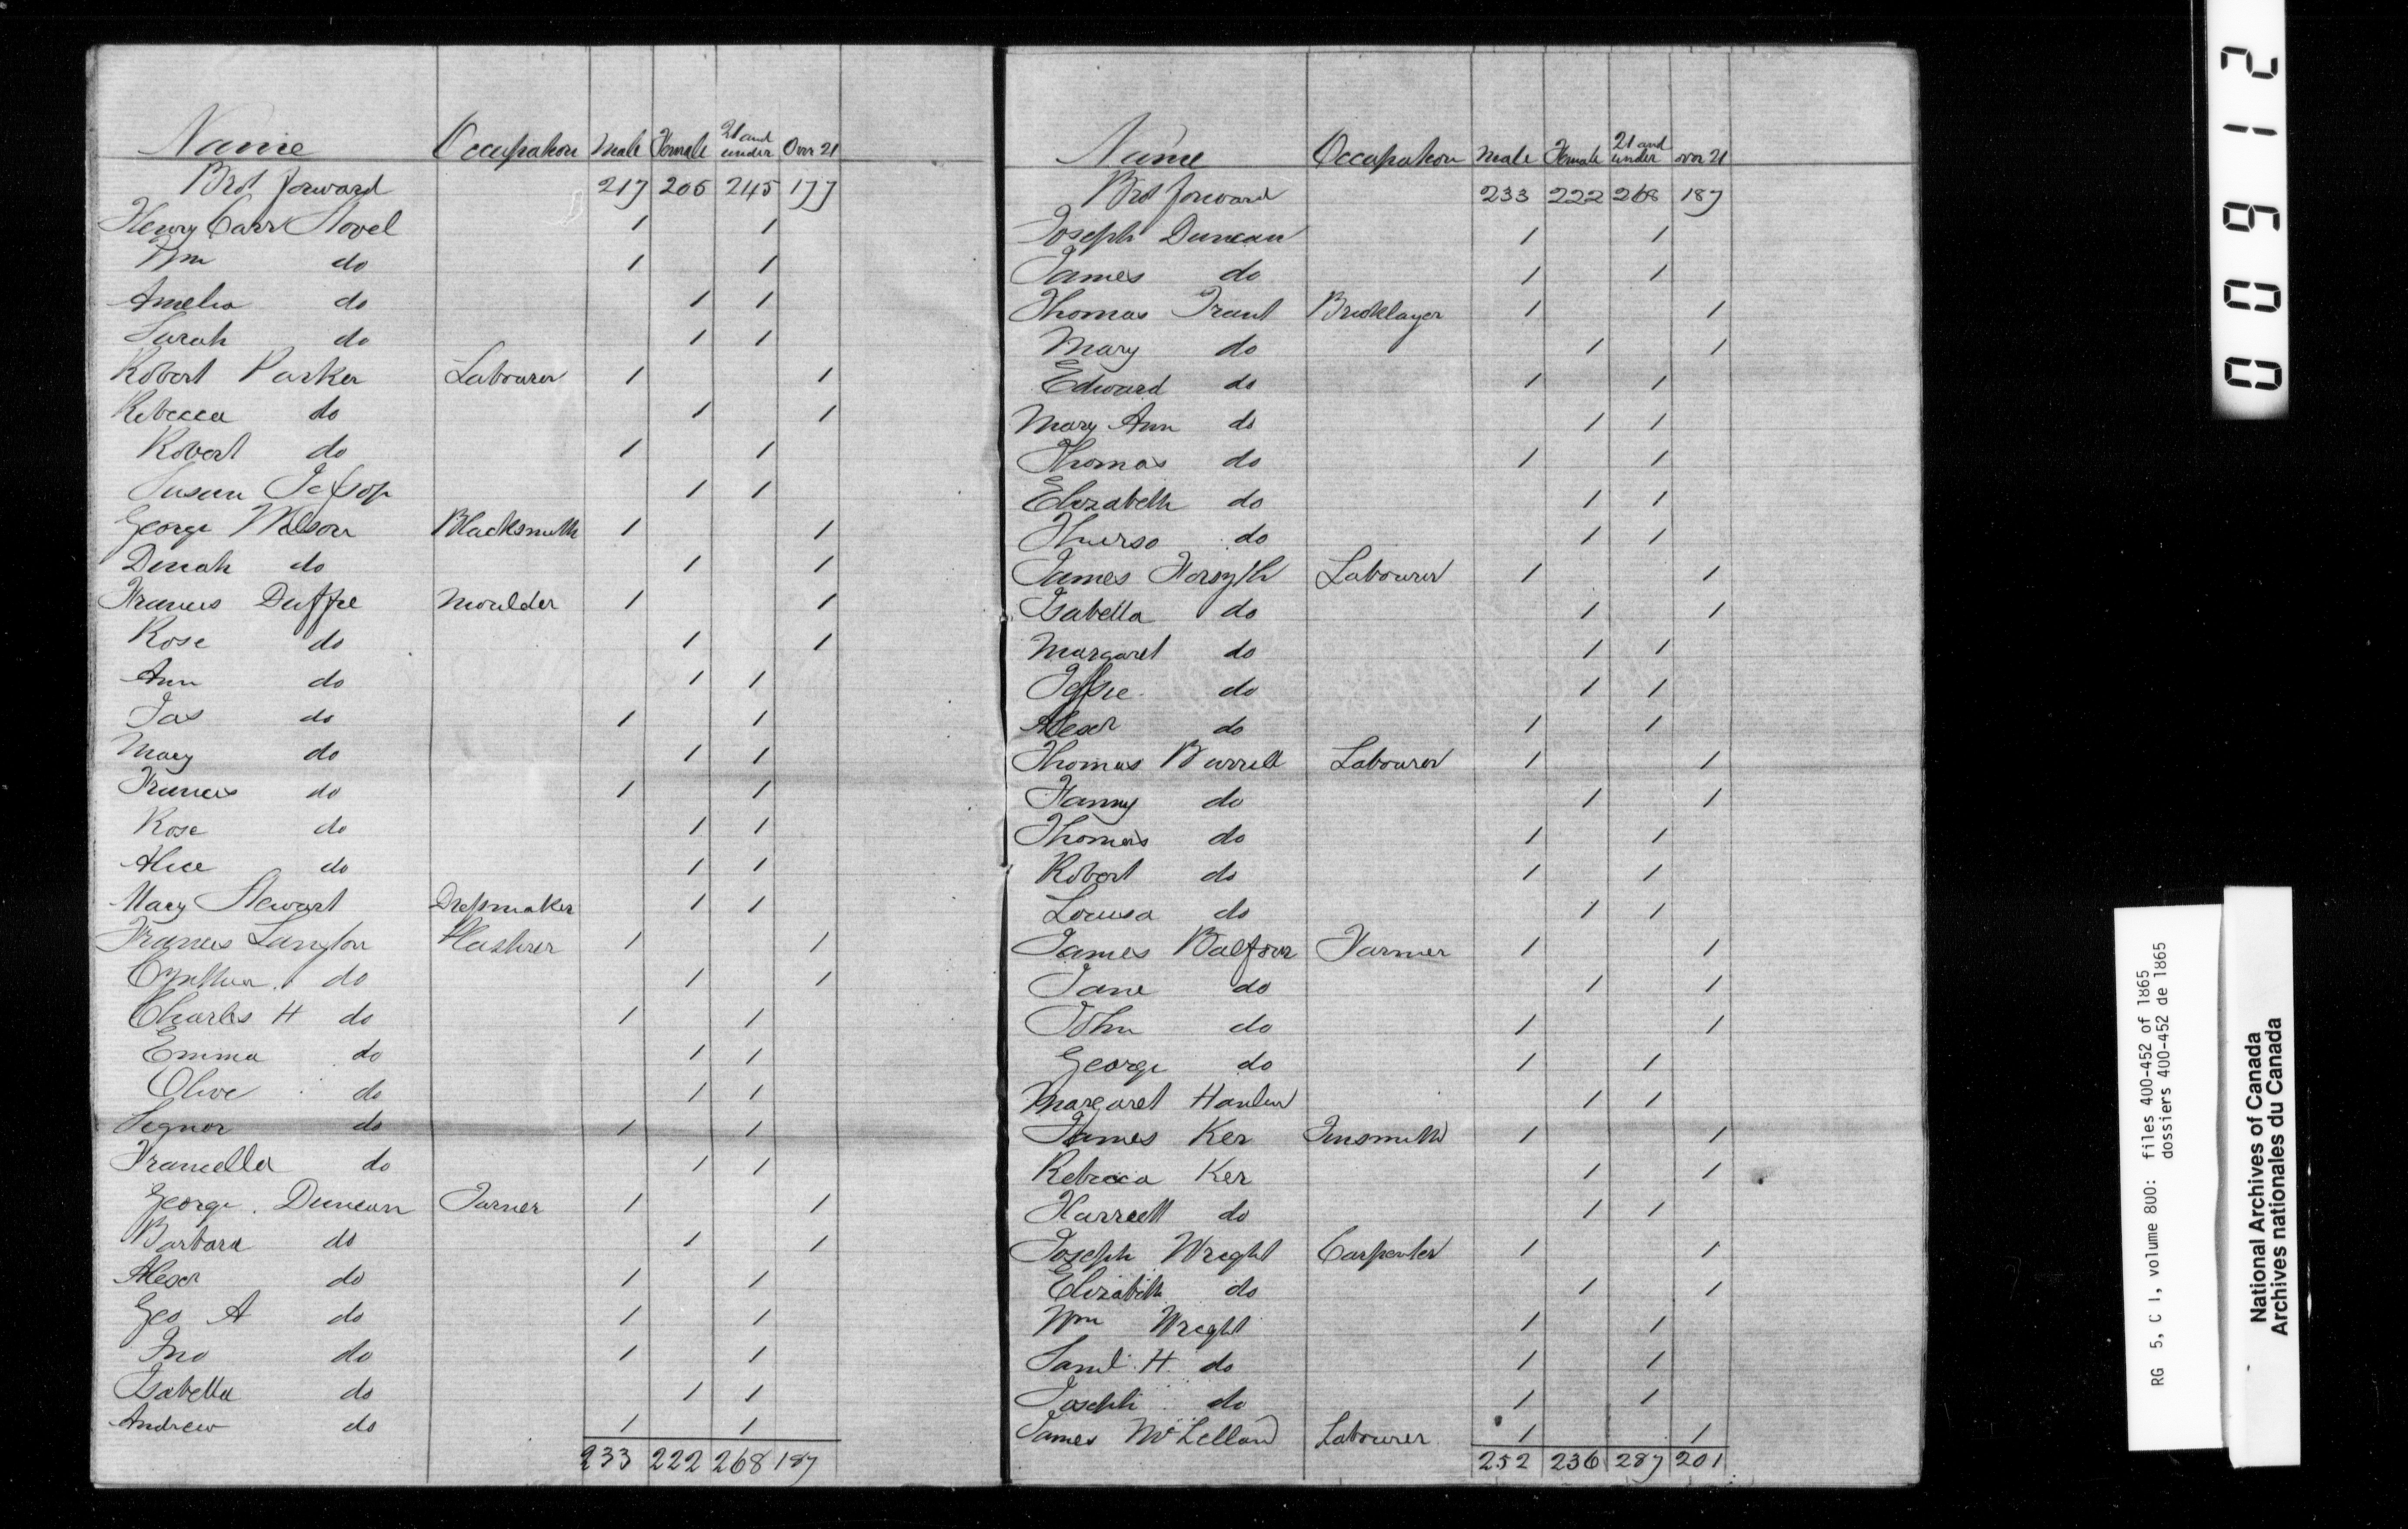 Name Occupation Male Female 21 and under Over 21
Brot forward 217 206 245 177
Henry Carr Stovel 1 1
Wm do 1 1
Amelia do 1 1
Sarah do 1 1
Robert Parker Labourer 1 1
Rebecca do 1 1
Robert do 1 1
Susan Jessop 1 1
George Wilson Blacksmith 1 1
Dinah do 1 1
Francis Duffie Moulder 1 1
Rose do 1 1
Ann do 1 1
Jas do 1 1
Mary do 1 1
Francis do 1 1
Rose do 1 1
Alice do 1 1
Mary Stewart Dressmaker 1 1
Francis Langton Plasterer 1 1
Cynthia do 1 1
Charles H do 1 1
Emma do 1 1
Olive do 1 1
Signor do 1 1
Francella do 1 1
George Duncan Farmer 1 1
Barbara do 1 1
Alexr do 1 1
Geo A do 1 1
Jno do 1 1
Isabella do 1 1
Andrew do 1 1
233 222 268 187
Name Occupation Male Female 21 and under over 21
Brot forward 233 222 268 187
Joseph Duncan 1 1
James do 1 1
Thomas Trant Bricklayer 1 1
Mary do 1 1
Edward do 1 1
Mary Ann do 1 1
Thomas do 1 1
Elizabeth do 1 1
do 1 1
James Forsyth Labourer 1 1
Isabella do 1 1
Margaret do 1 1
Jessie do 1 1
Alexr do 1 1
Thomas Burrell Labourer 1 1
Fanny do 1 1
Thomas do 1 1
Robert do 1 1
Louisa do 1 1
James Balfour Farmer 1 1
Jane do 1 1
John do 1 1
George do 1 1
Margaret Hanlen 1 1
James Ker Tinsmith 1 1
Rebecca Ker 1 1
Harriett do 1 1
Joseph Wright Carpenter 1 1
Elizabeth do 1 1
Wm Wright 1 1
Saml H. do 1 1
Joseph do 1 1
James McLellan Labourer 1 1
252 236 287 201
000912
RG 5, C 1, volume 800: files 400-452 of 1865
dossiers 400-452 de 1865
National Archives of Canada
Archives nationales du Canada